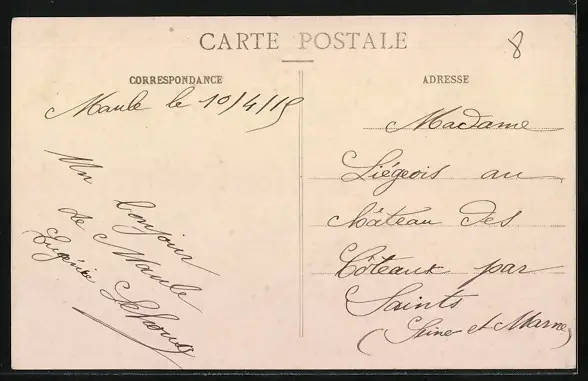 CARTE POSTALE
8
CORRESPONDANCE
ADRESSE
Maule le 10/4/15
Un bonjour
de Maule
Eugénie
Madame
Liégeois au
château des
Côteaux par
Saints
(Seine et Marne)